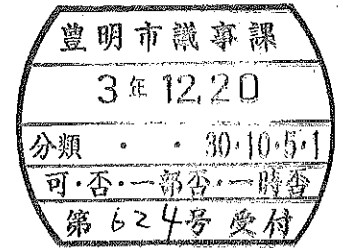 豊明市議事課
3年12.20
分類 ・ ・ 30・10・5・1
可・否・一部否・一時否
第624号 受付